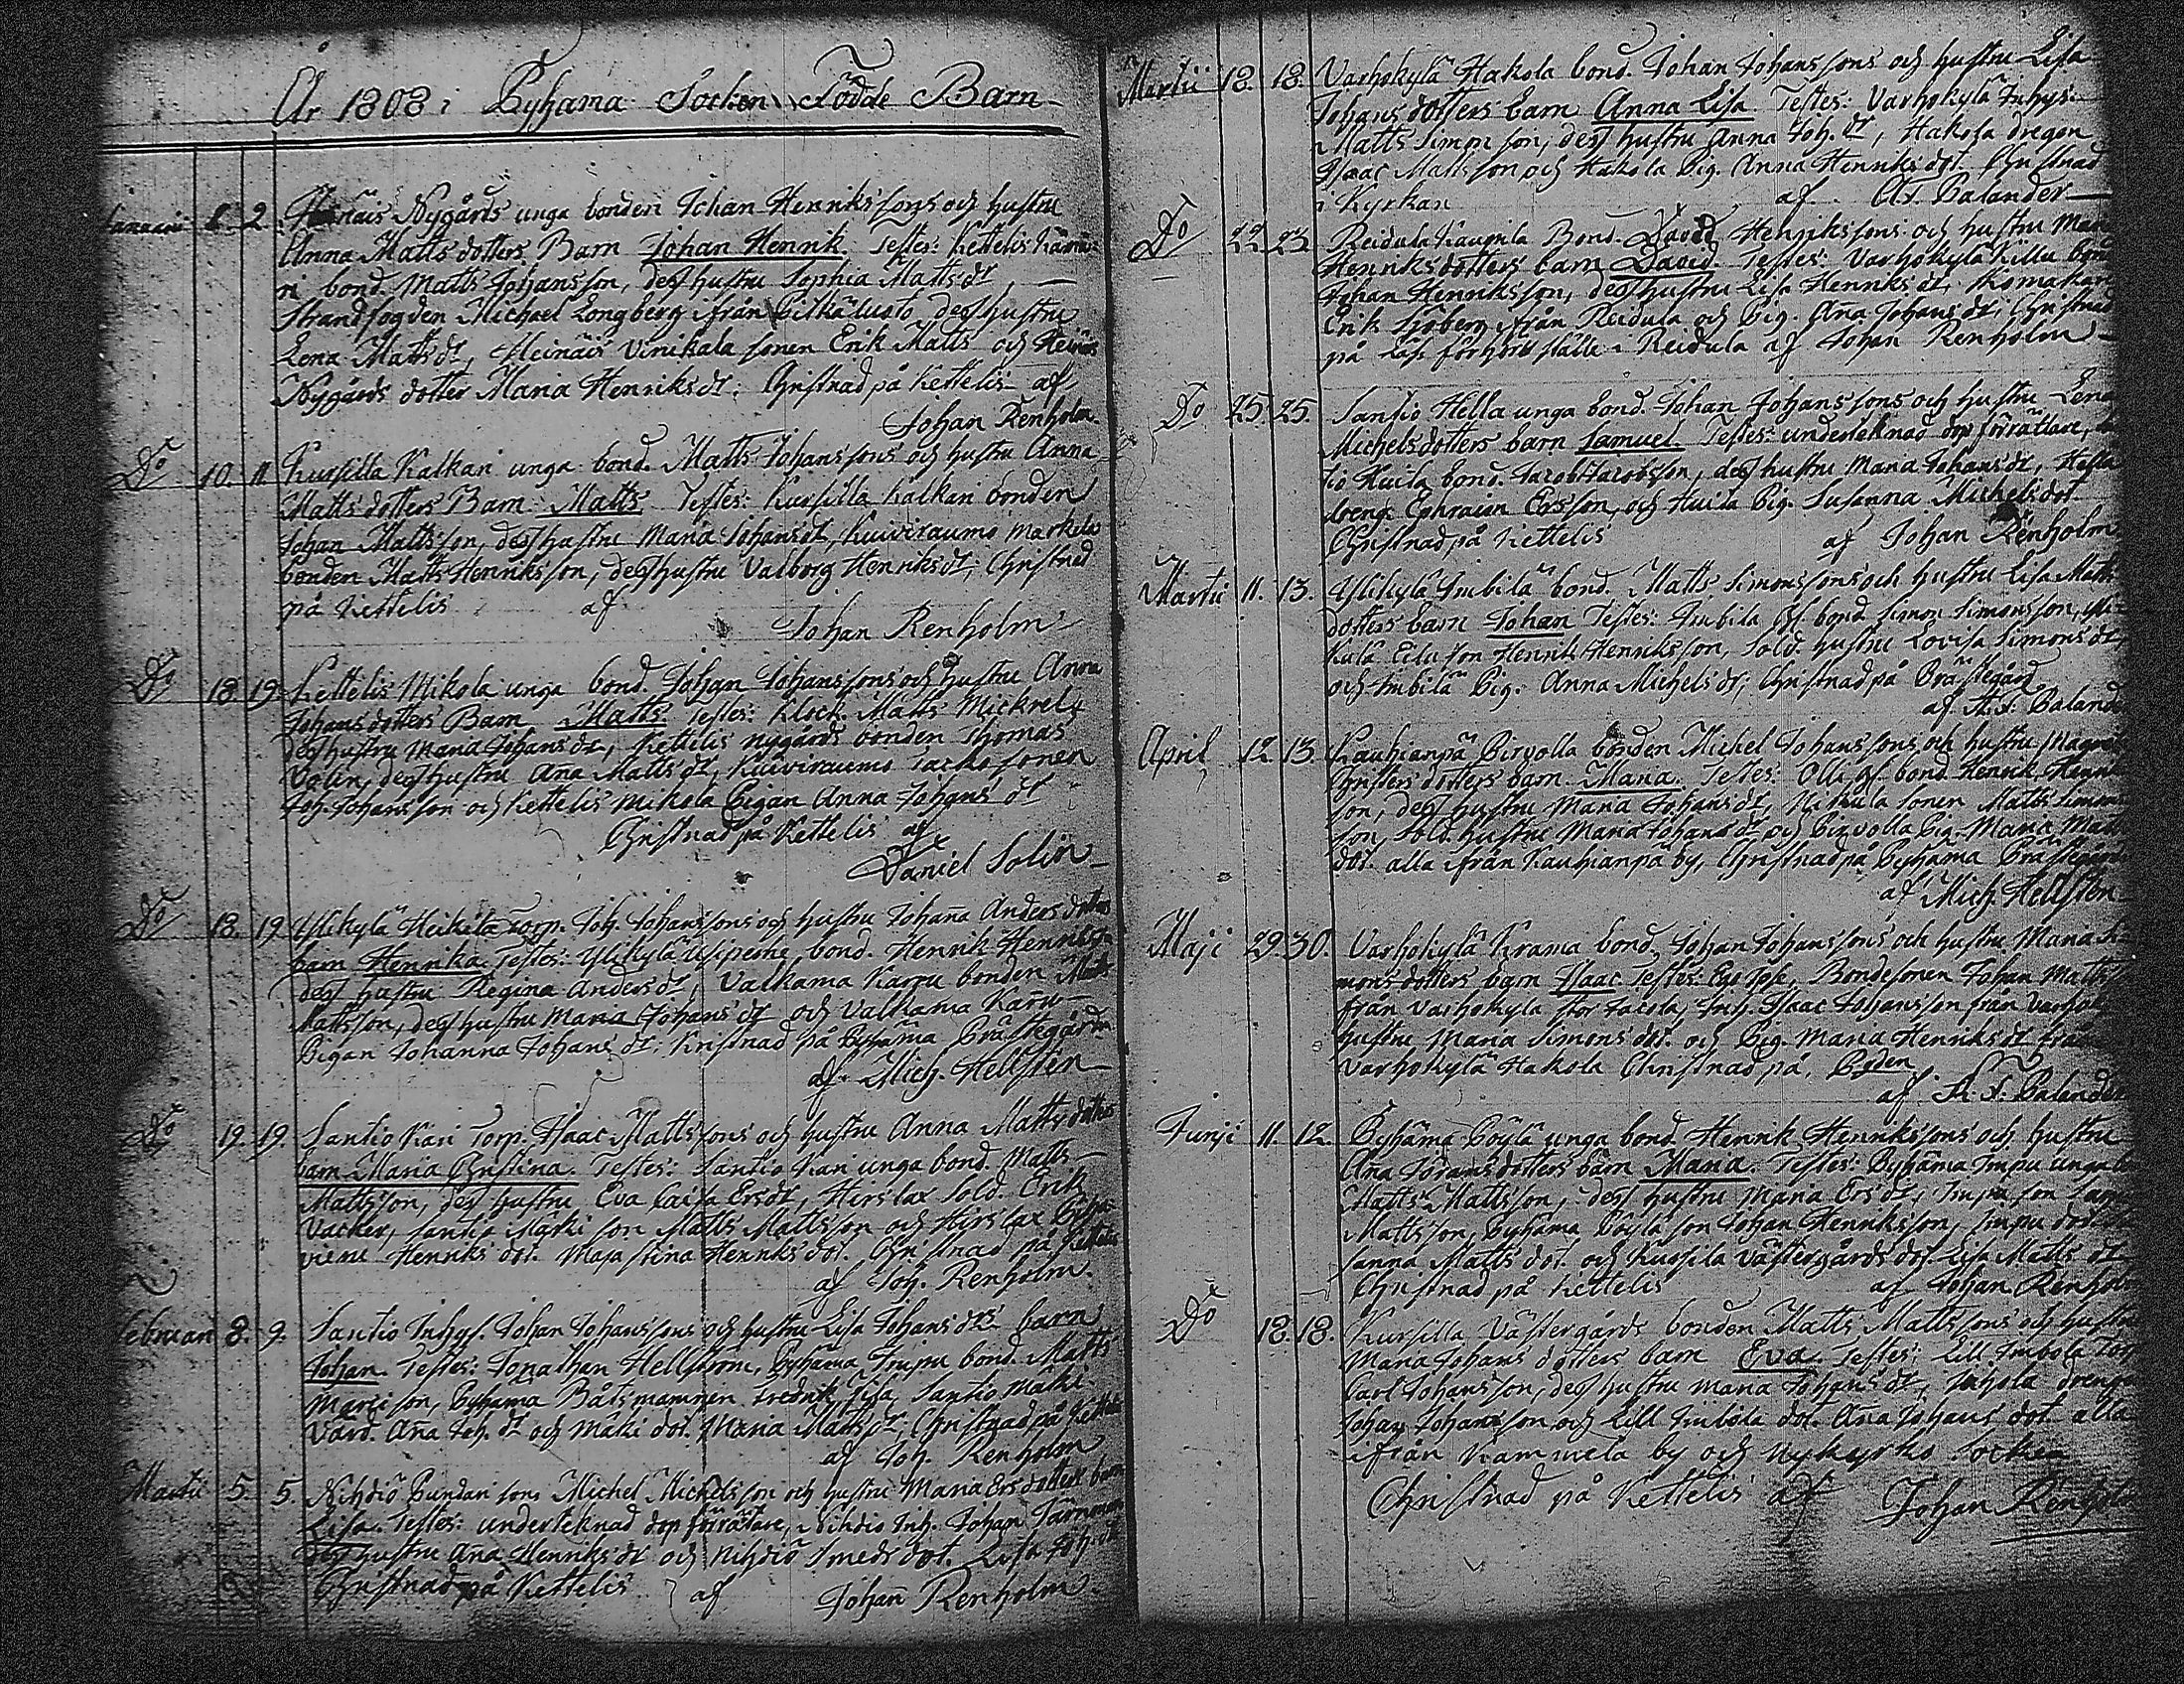 År 1808 i Pyhama Socken Födde Barn
Januarii 1. 2. Heinäis Nygårds unga bonden Johan Henrikssons och hustru
Anna Mattsdotters Barn Johan Henrik Testes: Kettelis
ri bond. Matts Johansson, dess hustru Sophia Mattsdr,
Strandfogden Michael Longberg ifrån Pitkäluoto dess hustru
Lena Mattsdr, Heinäis Vinikala sonen Erik Matts och Heinäis
Nygårds dotter Maria Henriksdr. Christnad på Kettelis af
Johan Renholm.
Do 10. 11. Kursilla Kalkari unga bond. Matts Johanssons och hustru Anna
Mattsdotters Barn Matts Testes: Kursilla Kalkari bonden
Johan Mattsson, dess hustru Maria Johansdr, Kuiviraumo Markela
bonden Matts Henriksson, dess hustru Valborg Henriksdr; Christnad
på Kettelis af
Johan Renholm
Do 18. 19. Kettelis Mikola unga bond. Johan Johanssons och hustru Anna
Johansdotters Barn Matts. Testes: Klock. Matts Mickrel
dess hustru Maria Johansdr, Kettelis nygårds bonden Thomas
Volin, dess hustru Aña Mattsdr, Kuiviraumo Jacko sonen
Joh. Johansson och Kettelis Mikola Pigan Anna Johansdr
Christnad på Kettelis af
Daniel Solin
Do 18. 19. Ylikylä Heikilä Torp. Joh. Johanssons och hustru Johaña Andersdotters
barn Henrika. Testes: Ylikylä bond. Henrik
dess hustru Regina Andersdr, Valkama Karru bonden Matts
Mattsson, dess hustru Maria Johansdr och Valkama Karru
Pigan Johanna Johansdr; Kristnad på Pyhäma Prästegård
af Mich. Hellsten
Do 19. 19. Santio Kari Torp. Isaac Mattssons och hustru Anna Mattsdotters
barn Maria Christina. Testes: Santio Kari unga bond. Matts
Mattsson, dess hustru Eva Caisa Ersdr, Hirslax Sold. Erik
Vacker, Santio Mäki son Matts Mattsson och Hirslax
Henriks dot. Maja Stina Henriksdot. Christnad på Kettelis
af Joh. Renholm.
Februari 8. 9. Santio Inhys. Johan Johanssons och hustru Lisa Johansdrs barn
Johan. Testes: Jonathan Hellström, Pyhäma Impu bond. Matts
son, Pyhäma Båtsmannen Fredrik, Santio Mäki
Värd. Aña Joh.dr och Mäki dot. Maria Mattsdr, Christnad på Kettelis
af Joh. Renholm
Martii 5. 5. Nihdiö Pundari son Michel Michelsson och hustru Maria Ersdotters barn
Lisa. Testes: underteknad dop förrättare, Nihdiö Inh. Johan
dess hustru Aña Henriksdr och Nihdiö Smeds dot. Lisa
Christnad på Kettelis af Johan Renholm
Martii 18. 18. Varhokylä Hakola bond. Johan Johanssons och hustru Lisa
Johansdotters barn Anna Lisa. Testes: Varhokylä Inhys.
Matts Simonson, dess hustru Anna Joh.dr, Hakola dregen
Isaac Mattsson och Hakola Pig. Anna Henriksdot. Christnad
i Kyrkan af Balander
Do 22. 23. Reidula Kaupila Bond. David Henrikssons och hustru
Henriksdotters barn David Testes: Varhokylä Killu bond
Johan Henriksson, dess hustru Lisa Henriksdr, Skomakaren
Erik Sjöberg ifrån Reidula och Pig. Aña Johansdr, Christnad
på Läs förhörs ställe i Reidula af Johan Renholm
Do 25. 25. Santio Hella unga bond. Johan Johanssons och hustru Lena
Michelsdotters barn Samuel. Testes: underteknad dop förrättare,
tio Kuila bond. Jacob Jacobsson, dess hustru Maria Johansdr, Hella
dreng Ephraim Ersson, och Kuila Pig. Susanna Michelsdot.
Christnad på Kettelis af Johan Renholm
Martii 11. 13. Ylikylä Imbilä bond. Matts Simonssons och hustru Lisa Matts
dotters barn Johan Testes: Imbilä gl. bond Simon Simonsson,
son Henrik Henriksson, Sold. hustru Lovisa Simonsdr
och Imbilä Pig. Anna Michelsdr; Christnad på Prästegård
af Baland
April 12. 13. Kauhianpä Pirvolla bonden Michel Johanssons och hustru
Christersdotters barn Maria. Testes: Olli gl. bond Henrik
son, dess hustru Maria Johansdr, sonen Matts Simons
son, Sold. hustru Maria Johansdr och Pirvolla Pig. Maria Matts
dot. alla ifrån Kauhianpä by, Christnad på Pyhäma Prästegård
af Mich. Hellsten
Maji 29. 30. Varhokylä Krama bond. Johan Johanssons och hustru Maria Si
monsdotters barn Isaac Testes: Ego Ipse, Bondesonen Johan Matts
från Varhokyla stor Jacola, Inh. Isaac Johansson från
hustru Maria Simons dot. och Pig. Maria Henriksdr från
Varhokylä Hakola Christnad på Byden
af Balander
Junji 11. 12. Pyhäma Pöylä unga bond. Henrik Henrikssons och hustru
Aña Göransdotters barn Maria. Testes: Pyhäma Impu unga
Matts Mattsson, dess hustru Maria Ersdr, Impu son
Mattsson, Pyhäma Pöylä son Johan Henriksson, Impu dot.
sanna Matts dot. och Kursila Västergårds dot. Lisa Matts dr
Christnad på Kettelis af Johan Renholm
Do 18. 18. Kursilla Västergårds bonden Matts Mattssons och hustru
Maria Johansdotters barn Eva. Testes: Lill Imbola Torp
Carl Johansson, dess hustru Maria Johansdr, drengen
Johan Johansson och Lill Imbola dot. Aña Johans dot. alla
ifrån Kammela by och Nykyrko Socken
Christnad på Kettelis af Johan Renholm